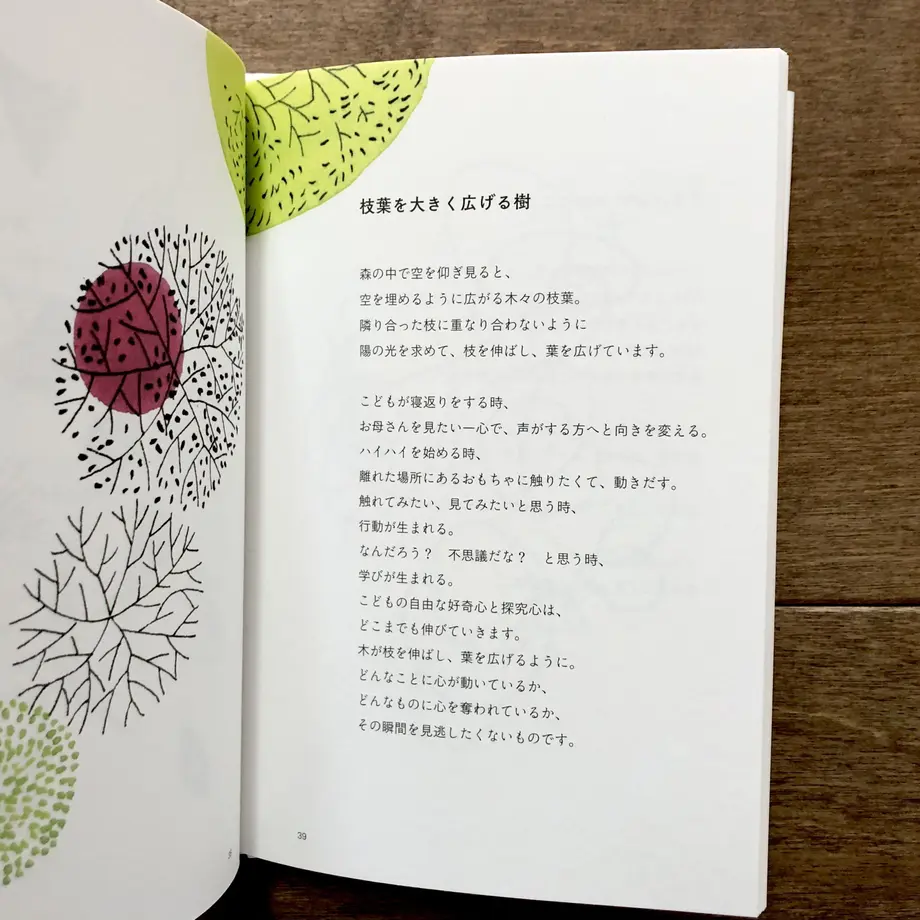 枝葉を大きく広げる樹
森の中で空を仰ぎ見ると、
空を埋めるように広がる木々の枝葉。
隣り合った枝に重なり合わないように
陽の光を求めて、枝を伸ばし、葉を広げています。
こどもが寝返りをする時、
お母さんを見たい一心で、声がする方へと向きを変える。
ハイハイを始める時、
離れた場所にあるおもちゃに触りたくて、動きだす。
触れてみたい、見てみたいと思う時、
行動が生まれる。
なんだろう？　不思議だな？　と思う時、
学びが生まれる。
こどもの自由な好奇心と探究心は、
どこまでも伸びていきます。
木が枝を伸ばし、葉を広げるように。
どんなことに心が動いているか、
どんなものに心を奪われているか、
その瞬間を見逃したくないものです。
39